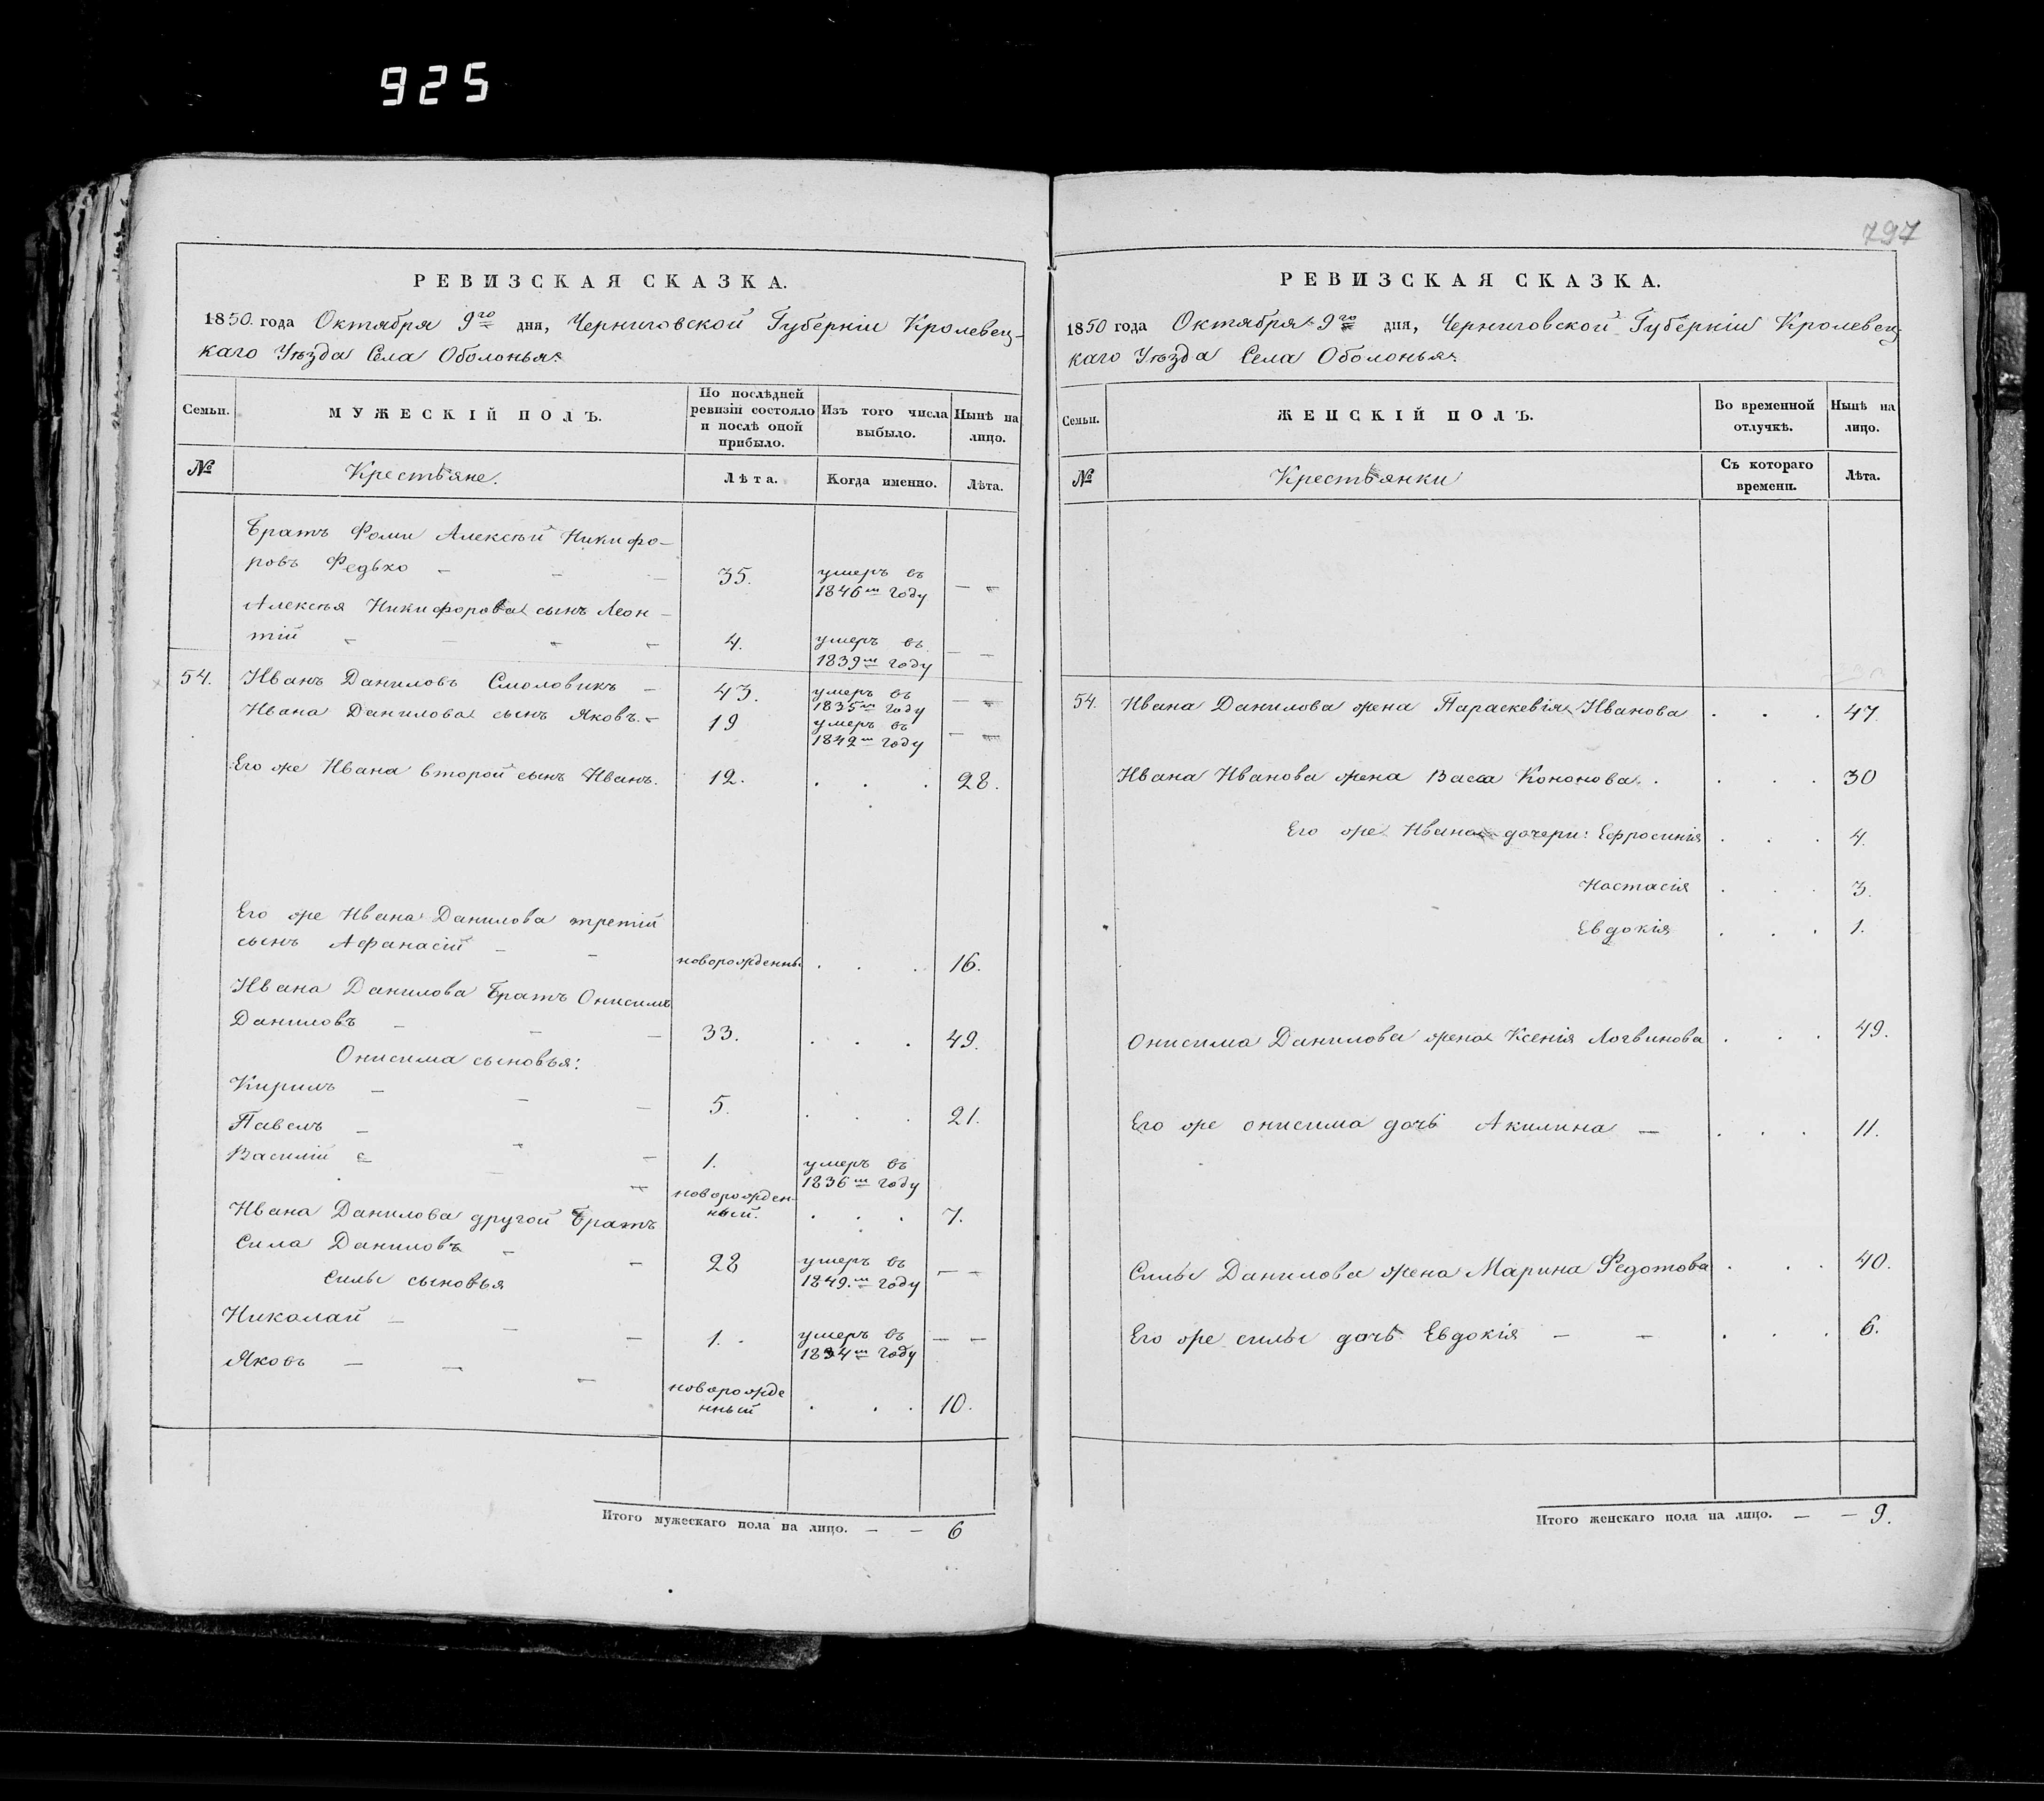 925
797
РЕВИЗСКАЯ СКАЗКА.
1850 года Октября 9го дня, Черниговской Губерніи Кролевец-
каго Уѣзда Села Оболонья
Семьи.
МУЖЕСКІЙ ПОЛЪ.
По послѣдней ревизіи состояло и послѣ оной прибыло.
Изъ того числа выбыло.
Ныне на лицо.
№
Крестьяне.
Лѣта.
Когда именно.
Лѣта.
Братъ Фомы Алексѣй Никифо-
ровъ Федько — — — 35. умеръ въ 1846м году — —
Алексѣя Никифорова сынъ Леон-
тій — — — — 4. умеръ въ 1839м году — —
54. Иванъ Даниловъ Смоловикъ — 43. умеръ въ 1835м году — —
Ивана Данилова сынъ Яковъ. — 19 умеръ въ 1842м году — —
Его же Ивана второй сынъ Иванъ. 12. . . . 28.
Его же Ивана Данилова третій
сынъ Афанасій — — новорожденны. . . . 16.
Ивана Данилова Братъ Онисимъ
Даниловъ — — — 33. . . . 49.
Онисима сыновья:
Кирилъ — — — 5. . . . 21.
Павелъ — — — 1. умеръ въ 1836м году
Василій — — — новорожден-ный. . . . 7.
Ивана Данилова другой Братъ
Сила Даниловъ — — 28 умеръ въ 1849.м году — —
Силы сыновья
Николай — — — 1. умеръ въ 1834м году — —
Яковъ — — — новорожде нный . . . 10.
Итого мужескаго пола на лицо. — — 6
РЕВИЗСКАЯ СКАЗКА.
1850 года Октября 9го дня, Черниговской Губерніи Кролевец
каго Уѣзда Села Оболонья
Семьи.
ЖЕНСКІЙ ПОЛЪ.
Во временной отлучкѣ.
Нынѣ на лицо.
№
Крестьянки
Съ котораго времени.
Лѣта.
54. Ивана Данилова жена Параскевія Иванова . . . 47.
Ивана Иванова жена Васса Кононова. . . . . 30
Его же Ивана дочери: Ефросинія . . . 4.
Настасія . . . 3.
Евдокія . . . 1.
Онисима Данилова жена Ксенія Логвинова . . . 49.
Его же Онисима дочь Акилина — . . . 11.
Силы Данилова жена Марина Федотова . . . 40.
Его же силы дочь Евдокія — — . . . 6.
Итого женскаго пола на лицо. — — 9.